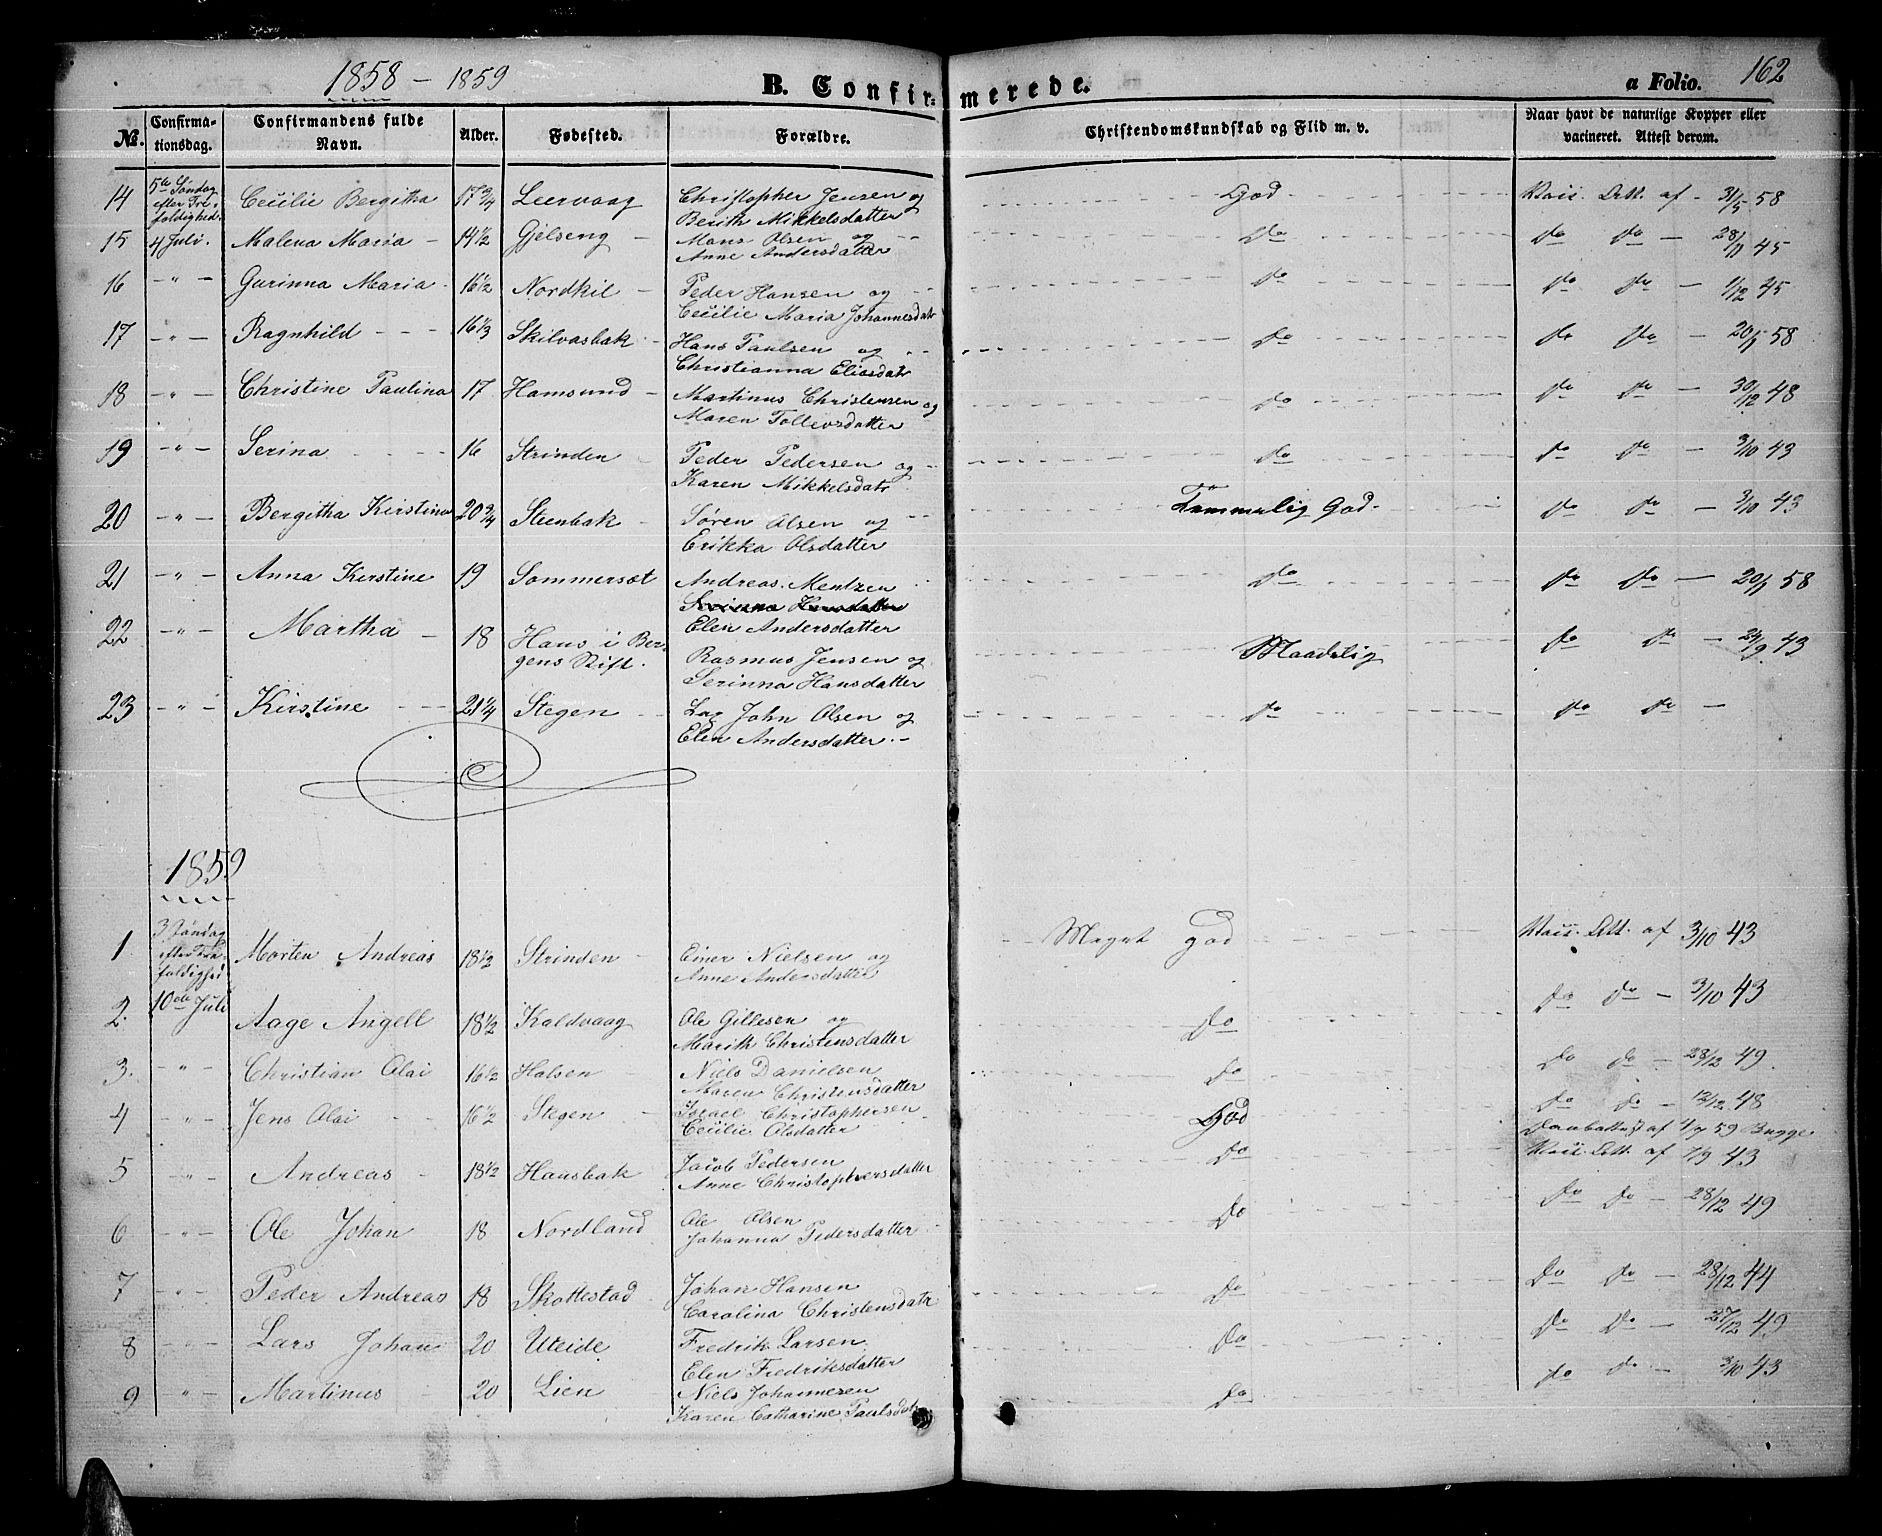 1858 - 1859
B. Confirmerede.
a Folio. 162
No. Confirmationsdag. Confirmandens fulde Navn. Alder. Fødested. Forældre. Christendomskundskab og Flid m. v. Naar havt de naturlige Kopper eller vacineret. Attest derom.
14 5te Søndag efter Trefoldighed. Cecilie Bergitha 17 3/4 Leervaag Christopher Jensen og Berith Mikkelsdatter God Vacc. Att. af 31/5 58
15 4 Juli. Malena Maria 14 1/2 Gjelseng Mons Olsen og Anne Andersdatter Do Do Do 45
16 - " - Gurinna Maria 16 1/2 Nordkil Peder Hansen og Cecilie Maria Johannesdatr Do Do Do 1/12 45
17 - " - Ragnhild 16 1/3 Skilvasbak Hans Paulsen og Christianna Eliasdatr Do Do Do 58
18 - " - Christine Paulina 17 Hamsund Martinus Christensen og Maren Tollevsdatter Do Do Do 30/12 48
19 - " - Serina 16 Strinden Peder Pedersen og Karen Mikkelsdatr Do Do Do 3/10 43
20 - " - Bergitha Kirstina 20 3/4 Steenbak Søren Olsen og Erikka Olsdatter Temmelig God Do Do 3/10 43
21 - " - Anna Kirstine 19 Sommersæt Andreas Mentzen Serinna Hansdatter Elen Andersdatter Do Do Do 58
22 - " - Martha 18 Hans i Bergens Stift. Rasmus Jensen og Serinna Hansdatter Maadelig Do Do 24/9 43
23 - " - Kirstine 21 1/4 Stegen John Olsen og Elen Andersdatter. Do Do Do
1859
1 3 Søndag efter Trefoldighed Morten Andreas 18 1/2 Strinden Einer Nielsen og Anne Andersdatter Meget god Vacc. Att. af 3/10 43
2. 10de Juli Aage Angell 18 1/2 Kaldvaag Ole Gillesen og Marith Christensdatter Do Do Do 3/10 43
3. " - Christian Olai 16 1/2 Halsen Niels Danielsen Maren Christensdatter Do Do Do 28/12 49.
4 - " - Jens Olai 16 1/2 Stegen Israel Christophersen Cecilie Olsdatter God Do Do 12/12 48
Daabattest af 59 Bugge
5 - " - Andreas 18 1/2 Hansbak Jacob Pedersen Anne Christophersdatter Do Vacc. Att. af 43
6 - " - Ole Johan 18 Nordland Ole Olsen Johanna Pedersdatter Do Do Do 28/12 49
7 - " - Peder Andreas 18 Skottestad Johan Hansen Carolina Christensdatr Do Do Do 28/12 44
8 - " - Lars Johan 20 Uteide Fredrik Larsen Elen Fredriksdatter Do Do Do 27/12 49
9 - " - Martinus 20 Lien Niels Johannesen Karen Catharine Paulsdatr Do Do Do 3/10 43